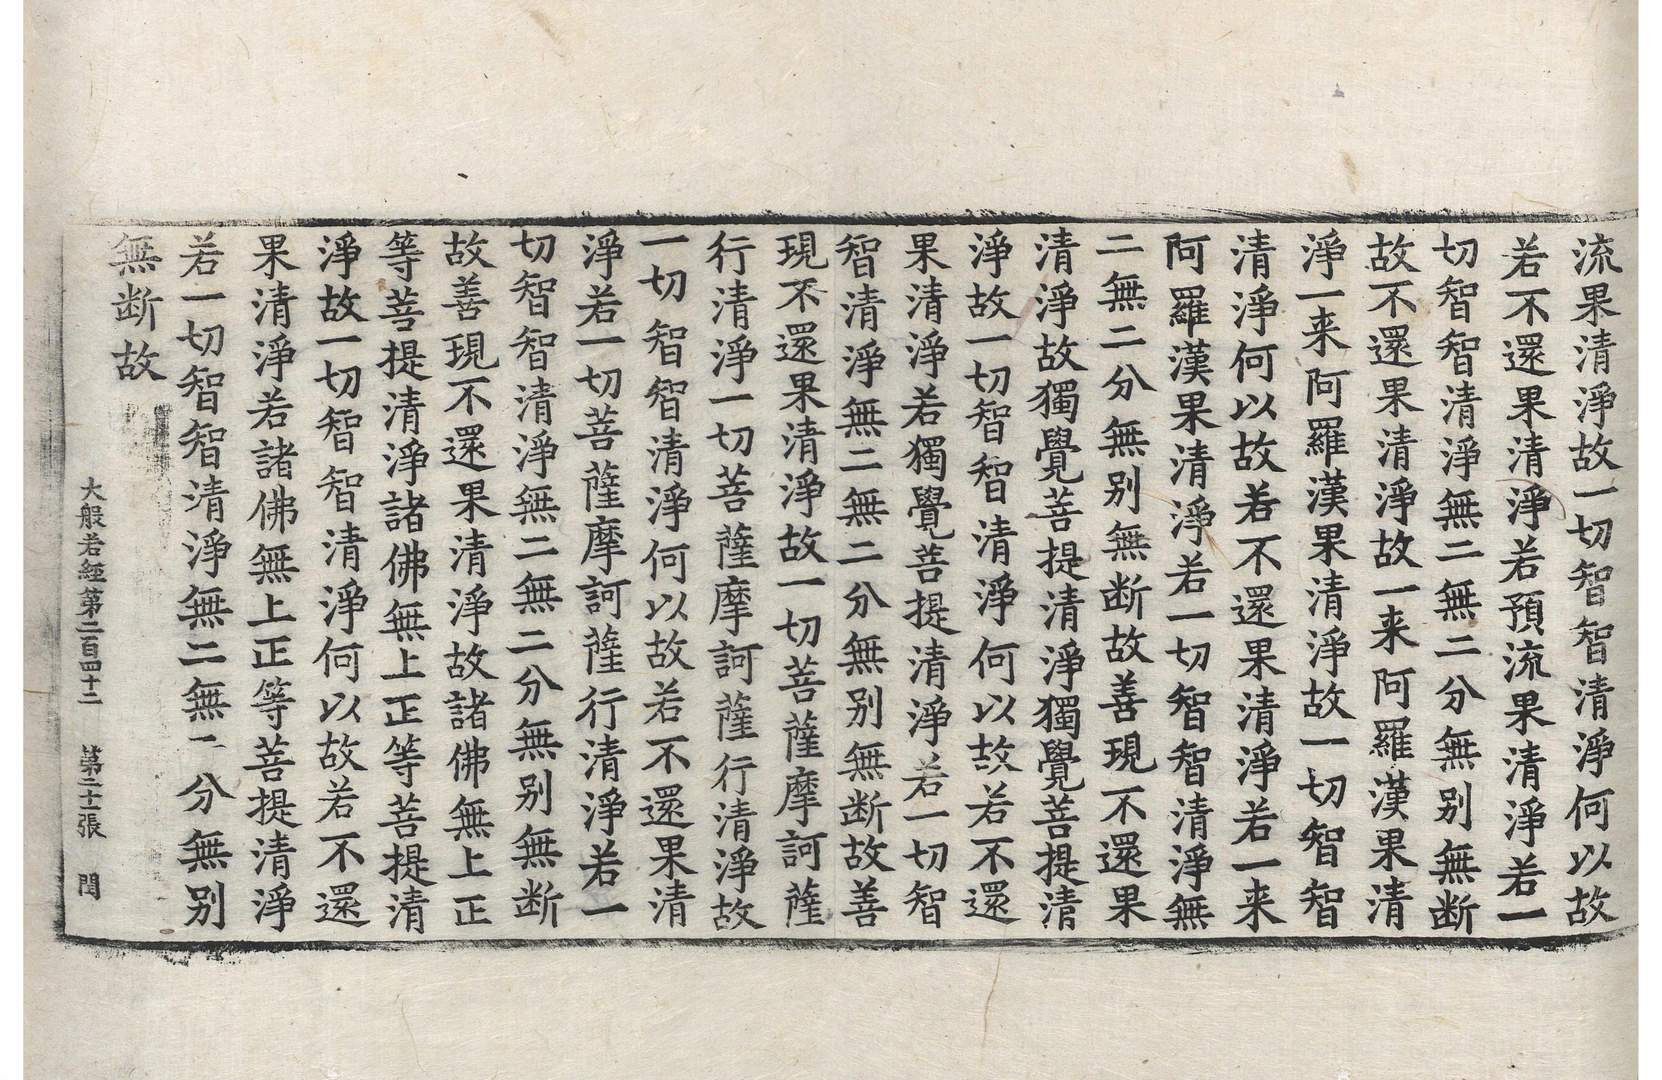 流果清淨故一切智智清淨何以故
若不還果清淨若預流果清淨若一
切智智清淨無二無二分無别無断
故不還果清淨故一来阿羅漢果清
淨一来阿羅漢果清淨故一切智智
清淨何以故若不還果清淨若一来
阿羅漢果清淨若一切智智清淨無
二無二分無别無断故善現不還果
清淨故獨覺菩提清淨獨覺菩提清
淨故一切智智清淨何以故若不還
果清淨若獨覺菩提清淨若一切智
智清淨無二無二分無别無断故善
現不還果清淨故一切菩薩摩訶薩
行清淨一切菩薩摩訶薩行清淨故
一切智智清淨何以故若不還果清
淨若一切菩薩摩訶薩行清淨若一
切智智清淨無二無二分無别無断
故善現不還果清淨故諸佛無上正
等菩提清淨諸佛無上正等菩提清
淨故一切智智清淨何以故若不還
果清淨若諸佛無上正等菩提清淨
若一切智智清淨無二無二分無别
無断故
大般若經第二百四十二 第二十一張 閏